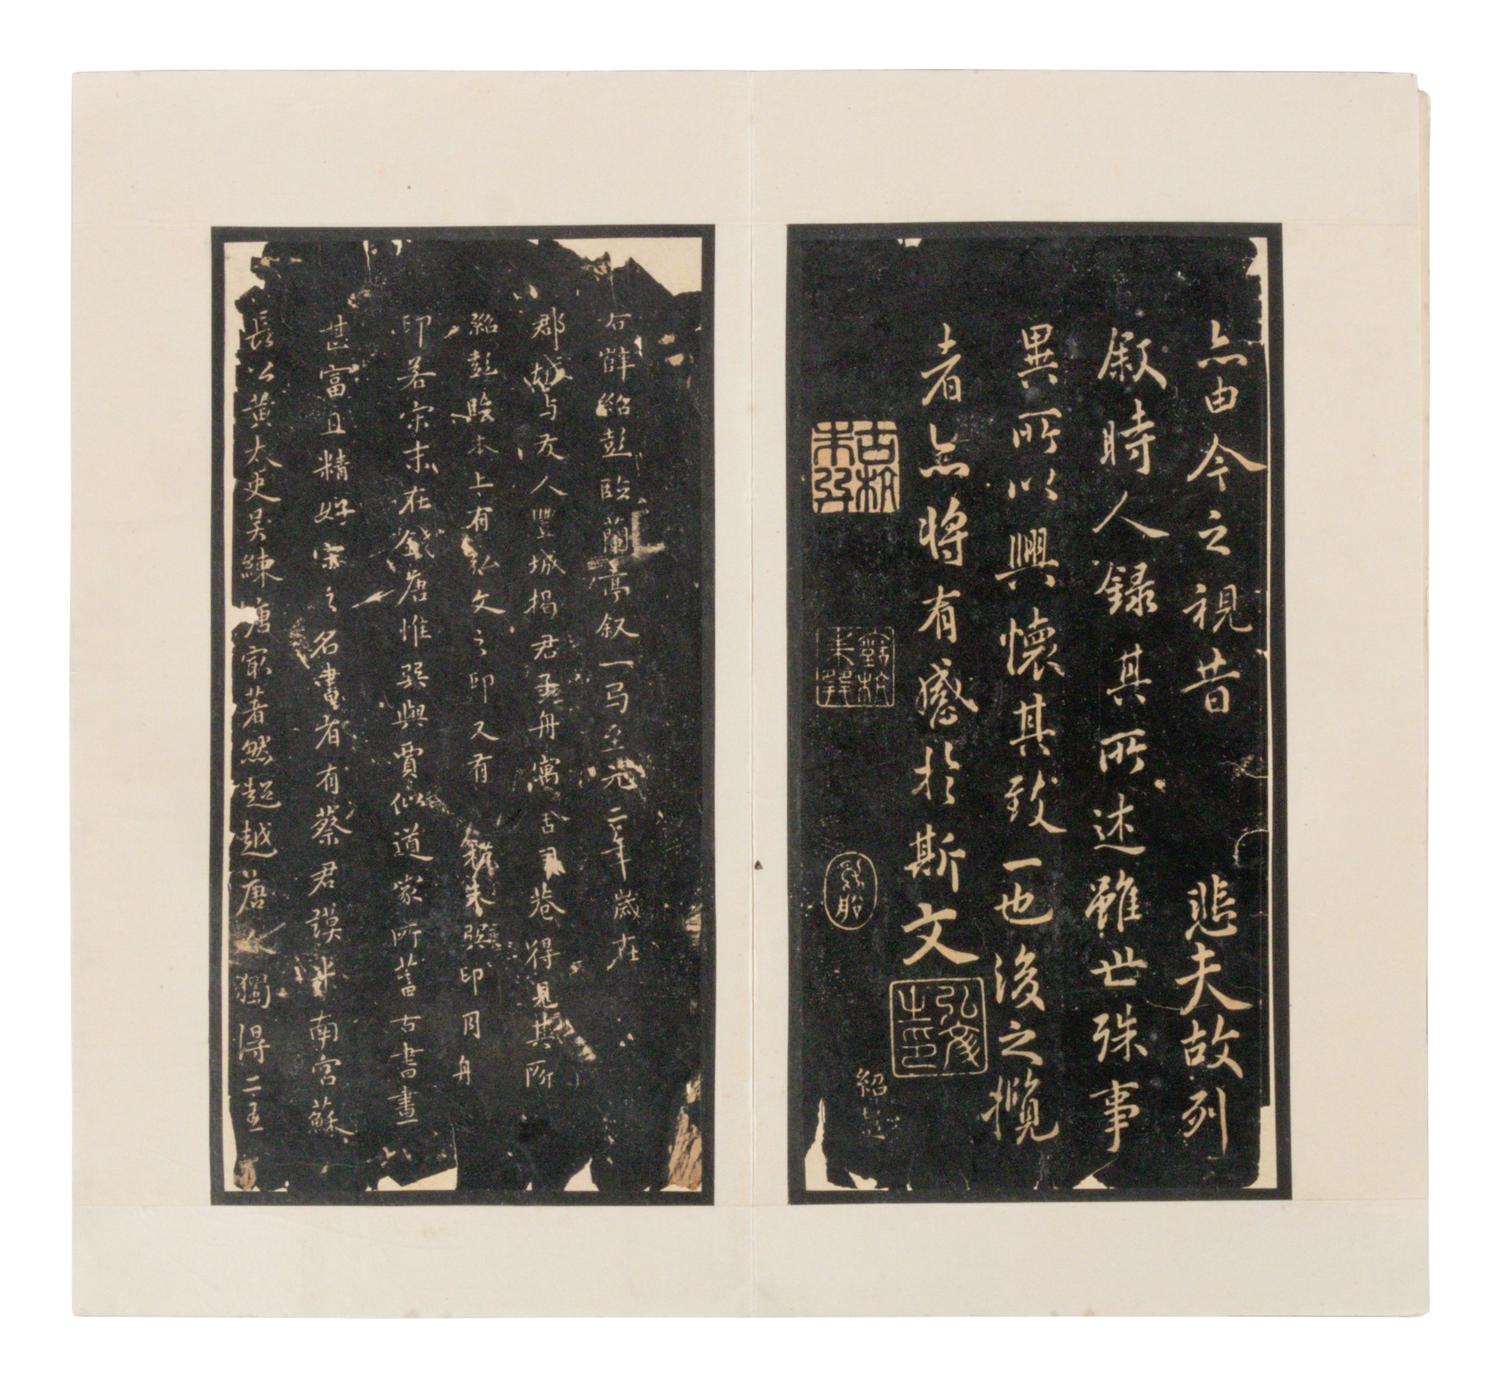 亦由今之視昔 悲夫故列
叙時人録其所述雖世殊事
異所以興懷其致一也後之攬
者亦將有感於斯文
弘文之印
紹彭
右薛紹彭臨蘭亭叙一 至元二年歲在
郡 与友人豐城揭君 舟寓 巷得見其所
紹彭臨本上有弘文之印又有 印同舟
印若宋末在錢唐惟 與賈似道家所蓄古書畫
甚富且精好宋之名書者有蔡君謨米南宮蘇
長公黄太史吴練唐 著然超越唐人獨得二王